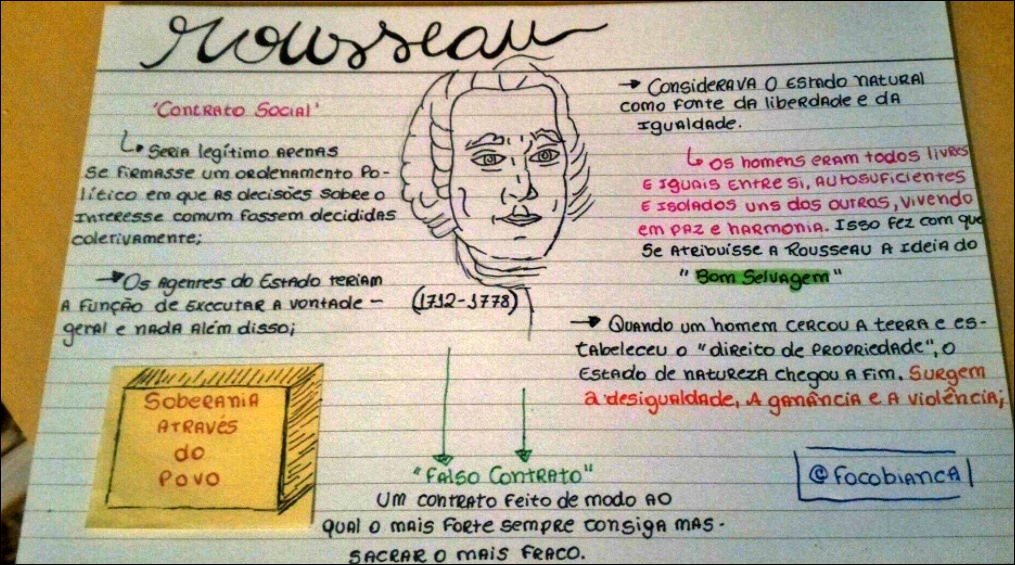 Rousseau
'Contrato Social'
Seria legítimo apenas
se firmasse um ordenamento po-
lítico em que as decisões sobre o
interesse comum fossem decididas
coletivamente;
Os agentes do Estado teriam
a função de executar a vontade -
geral e nada além disso;
Soberania
através
do
povo
(1712-1778)
"Falso Contrato"
Um contrato feito de modo ao
qual o mais forte sempre consiga mas-
sacrar o mais fraco.
Considerava o estado natural
como fonte da liberdade e da
igualdade.
Os homens eram todos livres
e iguais entre si, autosuficientes
e isolados uns dos outros, vivendo
em paz e harmonia. Isso fez com que
se atribuísse a Rousseau a ideia do
"Bom Selvagem"
Quando um homem cercou a terra e es-
tabeleceu o "direito de propriedade", o
estado de natureza chegou a fim. Surgem
a desigualdade, a ganância e a violência;
@focobianca